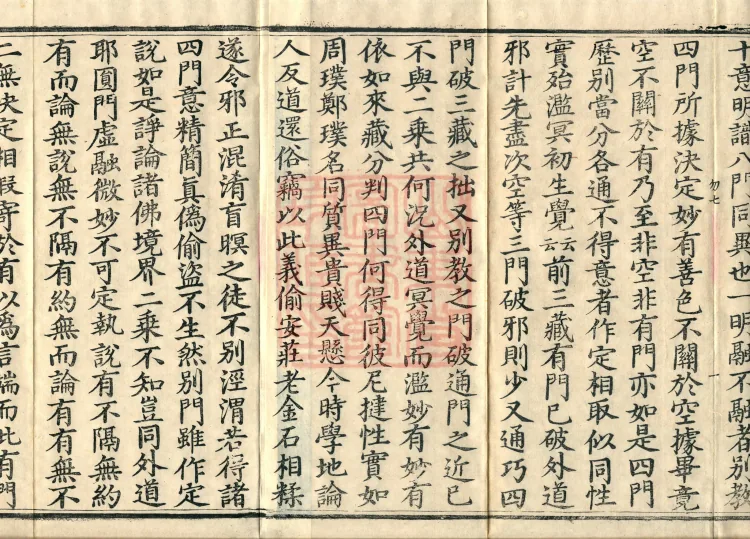 十意明識八門同異也一明融不融者別教
勿七
一
四門所據決定妙有善色不關於空據畢竟
空不關於有乃至非空非有門亦如是四門
歷別當分各通不得意者作定相取似同性
實殆濫冥初生覺云云前三藏有門已破外道
邪計先盡次空等三門破邪則少又通巧四
門破三藏之拙又別教之門破通門之近已
不與二乘共何況外道冥覺而濫妙有妙有
依如來藏分判四門何得同彼尼揵性實如
周璞鄭璞名同質異貴賤天懸今時學地論
人反道還俗竊以此義偷安莊老金石相糅
遂令邪正混淆盲瞑之徒不別涇渭若得諸
四門意精簡眞僞偷盜不生然別門雖作定
說如是諍論諸佛境界二乘不知豈同外道
耶圓門虛融微妙不可定執說有不隔無約
有而論無說無不隔有約無而論有有無不
二無決定相假寄於有以爲言端而此有門